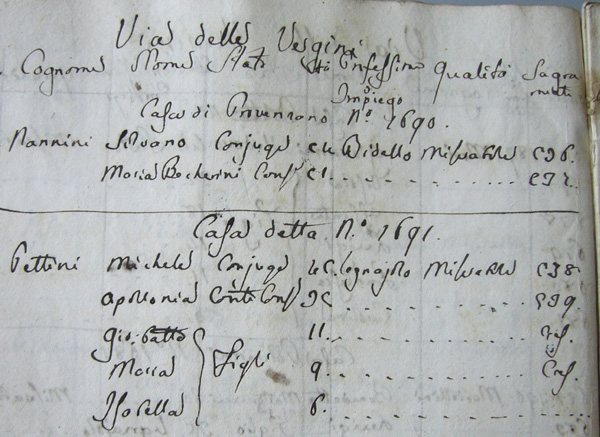 Via delle Vergini
Cognome Nome Stato Età Professione Qualità Sagra
o Impiego menti
Casa di Provenzano N.º 1690.
Nannini Silvano Conjuge Bidello Miserabile C S
Maria Bocherini Cons.
Casa detta N.º 1691.
Pettini Michele Conjuge Legnajolo Miserabile C S
Apollonia Conti Cons.
Gio: Batta 11.
Maria Figli 9. Cres.
Isabella 6.